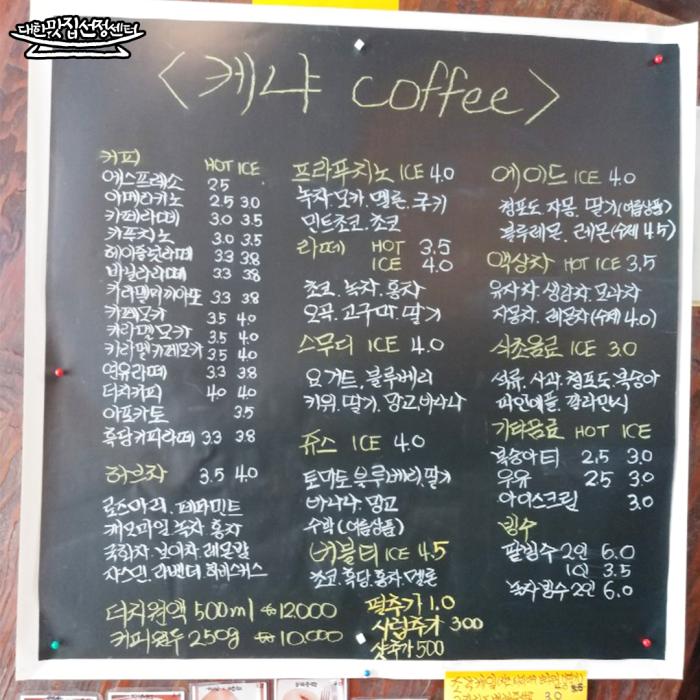 대한맛집선정센터
<케냐 coffee>
커피 HOT ICE
에스프레소 2.5
아메리카노 2.5 3.0
카페라떼 3.0 3.5
카푸치노 3.0 3.5
헤이즐넛라떼 3.3 3.8
바닐라라떼 3.3 3.8
카라멜마끼아또 3.3 3.8
카페모카 3.5 4.0
카라멜모카 3.5 4.0
카라멜카페모카 3.5 4.0
연유라떼 3.3 3.8
더치커피 4.0 4.0
아포카토 3.5
흑당커피라떼 3.3 3.8
허브차 3.5 4.0
로즈마리. 페퍼민트
캐모마일. 녹차. 홍차
국화차. 보이차. 레몬밤
자스민. 라벤더. 히비스커스
더치원액 500ml ₩12,000
커피원두 250g ₩10,000
프라푸치노 ICE 4.0
녹차. 모카. 멜론. 쿠키
민트초코. 초코
라떼 HOT 3.5
ICE 4.0
초코. 녹차. 홍차
오곡. 고구마. 딸기
스무디 ICE 4.0
요거트. 블루베리
키위. 딸기. 망고.바나나
쥬스 ICE 4.0
토마토. 블루베리. 딸기
바나나. 망고
수박(여름상품)
버블티 ICE 4.5
초코. 흑당. 홍차. 멜론
펄추가 1.0
시럽추가 300
샷추가 500
에이드 ICE 4.0
청포도. 자몽. 딸기(여름상품)
블루레몬. 레몬(수제 4.5)
액상차 HOT ICE 3.5
유자차. 생강차. 모과차
자몽차. 레몬차(수제 4.0)
식초음료 ICE 3.0
석류. 사과. 청포도. 복숭아
파인애플. 깔라만시
기타음료 HOT ICE
복숭아티 2.5 3.0
우유 2.5 3.0
아이스크림 3.0
빙수
팥빙수 2인 6.0
1인 3.5
녹차빙수 2인 6.0